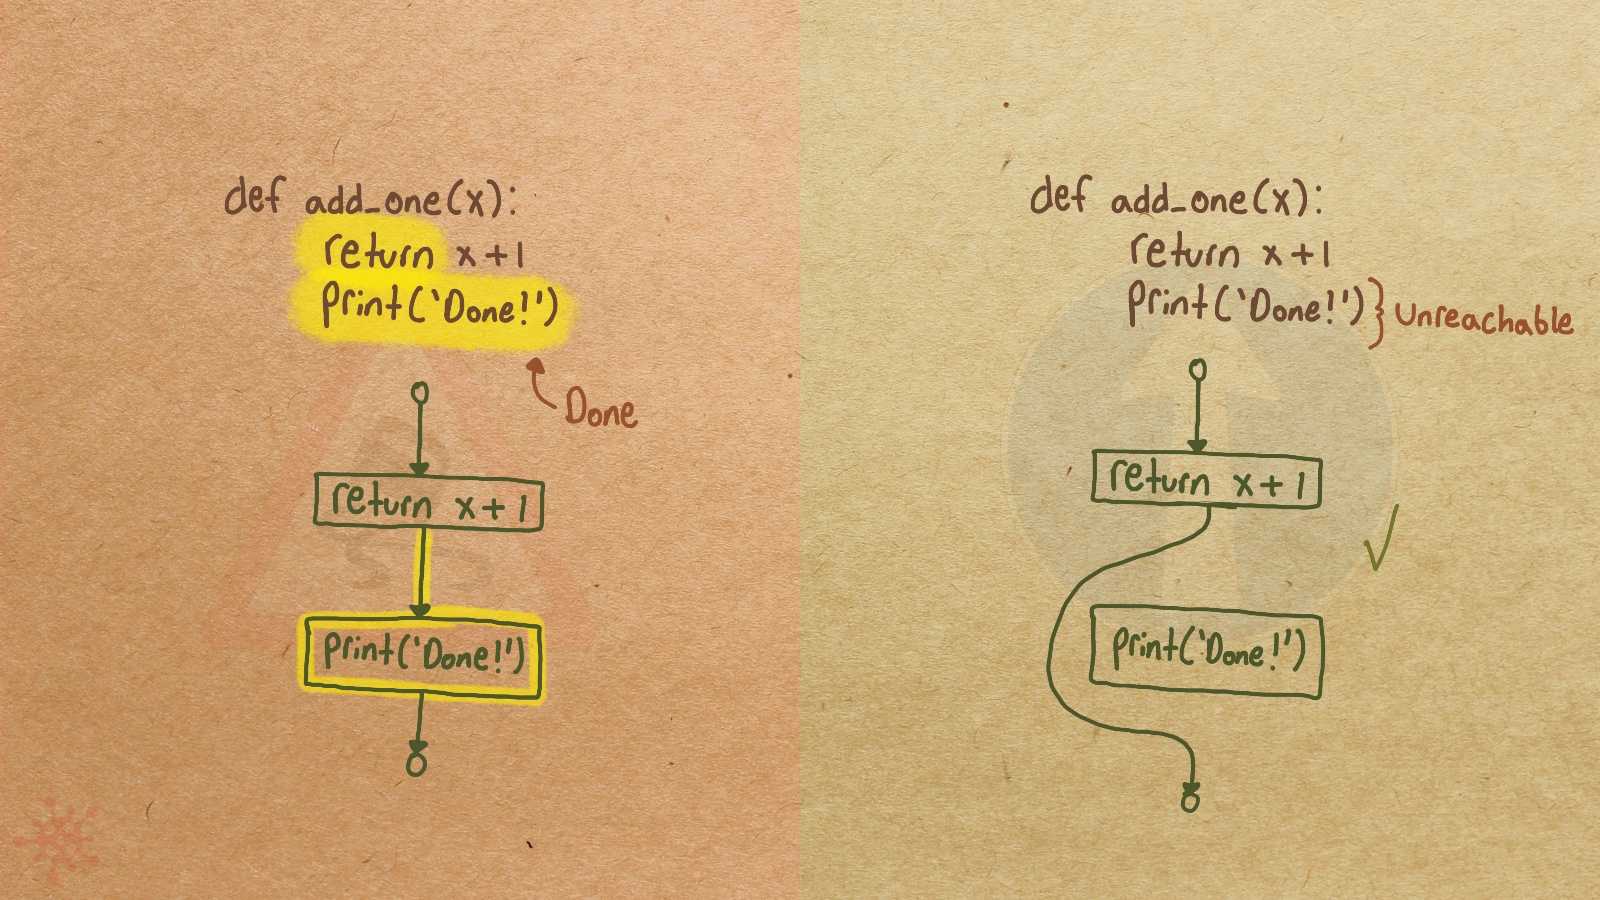 def add_one(x):
return x+1
print('Done!')
Done
return x+1
print('Done!')
def add_one(x):
return x+1
print('Done!')
Unreachable
return x+1
print('Done!')